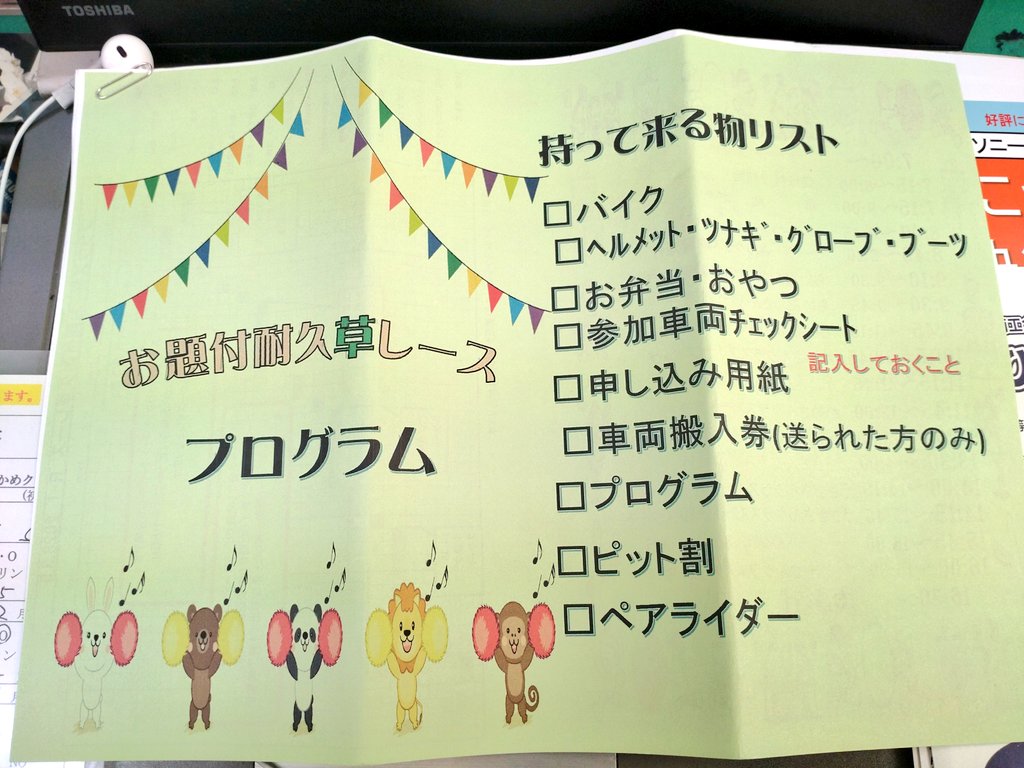 TOSHIBA
お題付耐久草レース
プログラム
持って来る物リスト
□バイク
□ヘルメット・ツナギ・グローブ・ブーツ
□お弁当・おやつ
□参加車両チェックシート
□申し込み用紙 記入しておくこと
□車両搬入券(送られた方のみ)
□プログラム
□ピット割
□ペアライダー
好評に
ソニー
ます。